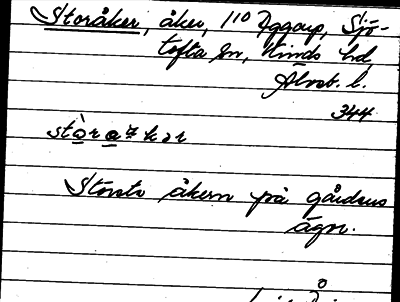 Storåker, åker, 1/10 Yggarp, Sjö-
tofta sn, Kinds hd,
Älvsb. l.
344
Största åkern på gårdens
ägor.